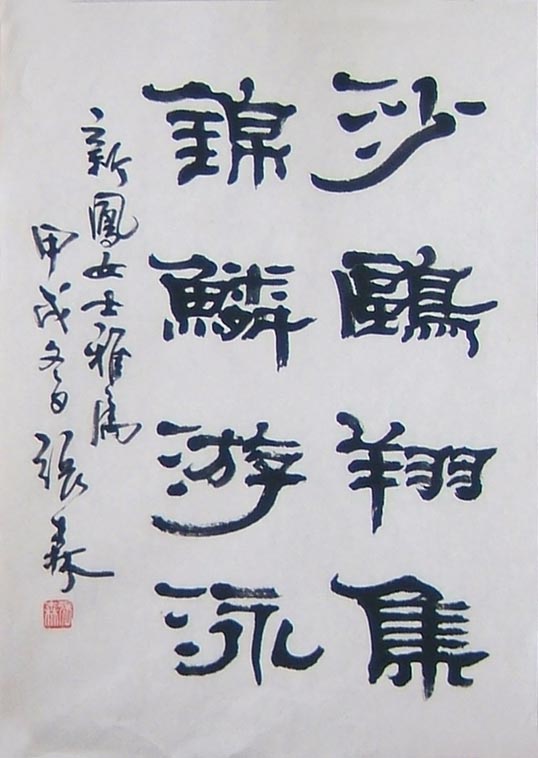 沙鷗翔集
錦鱗游泳
新鳳女士雅屬
甲戌冬日張森